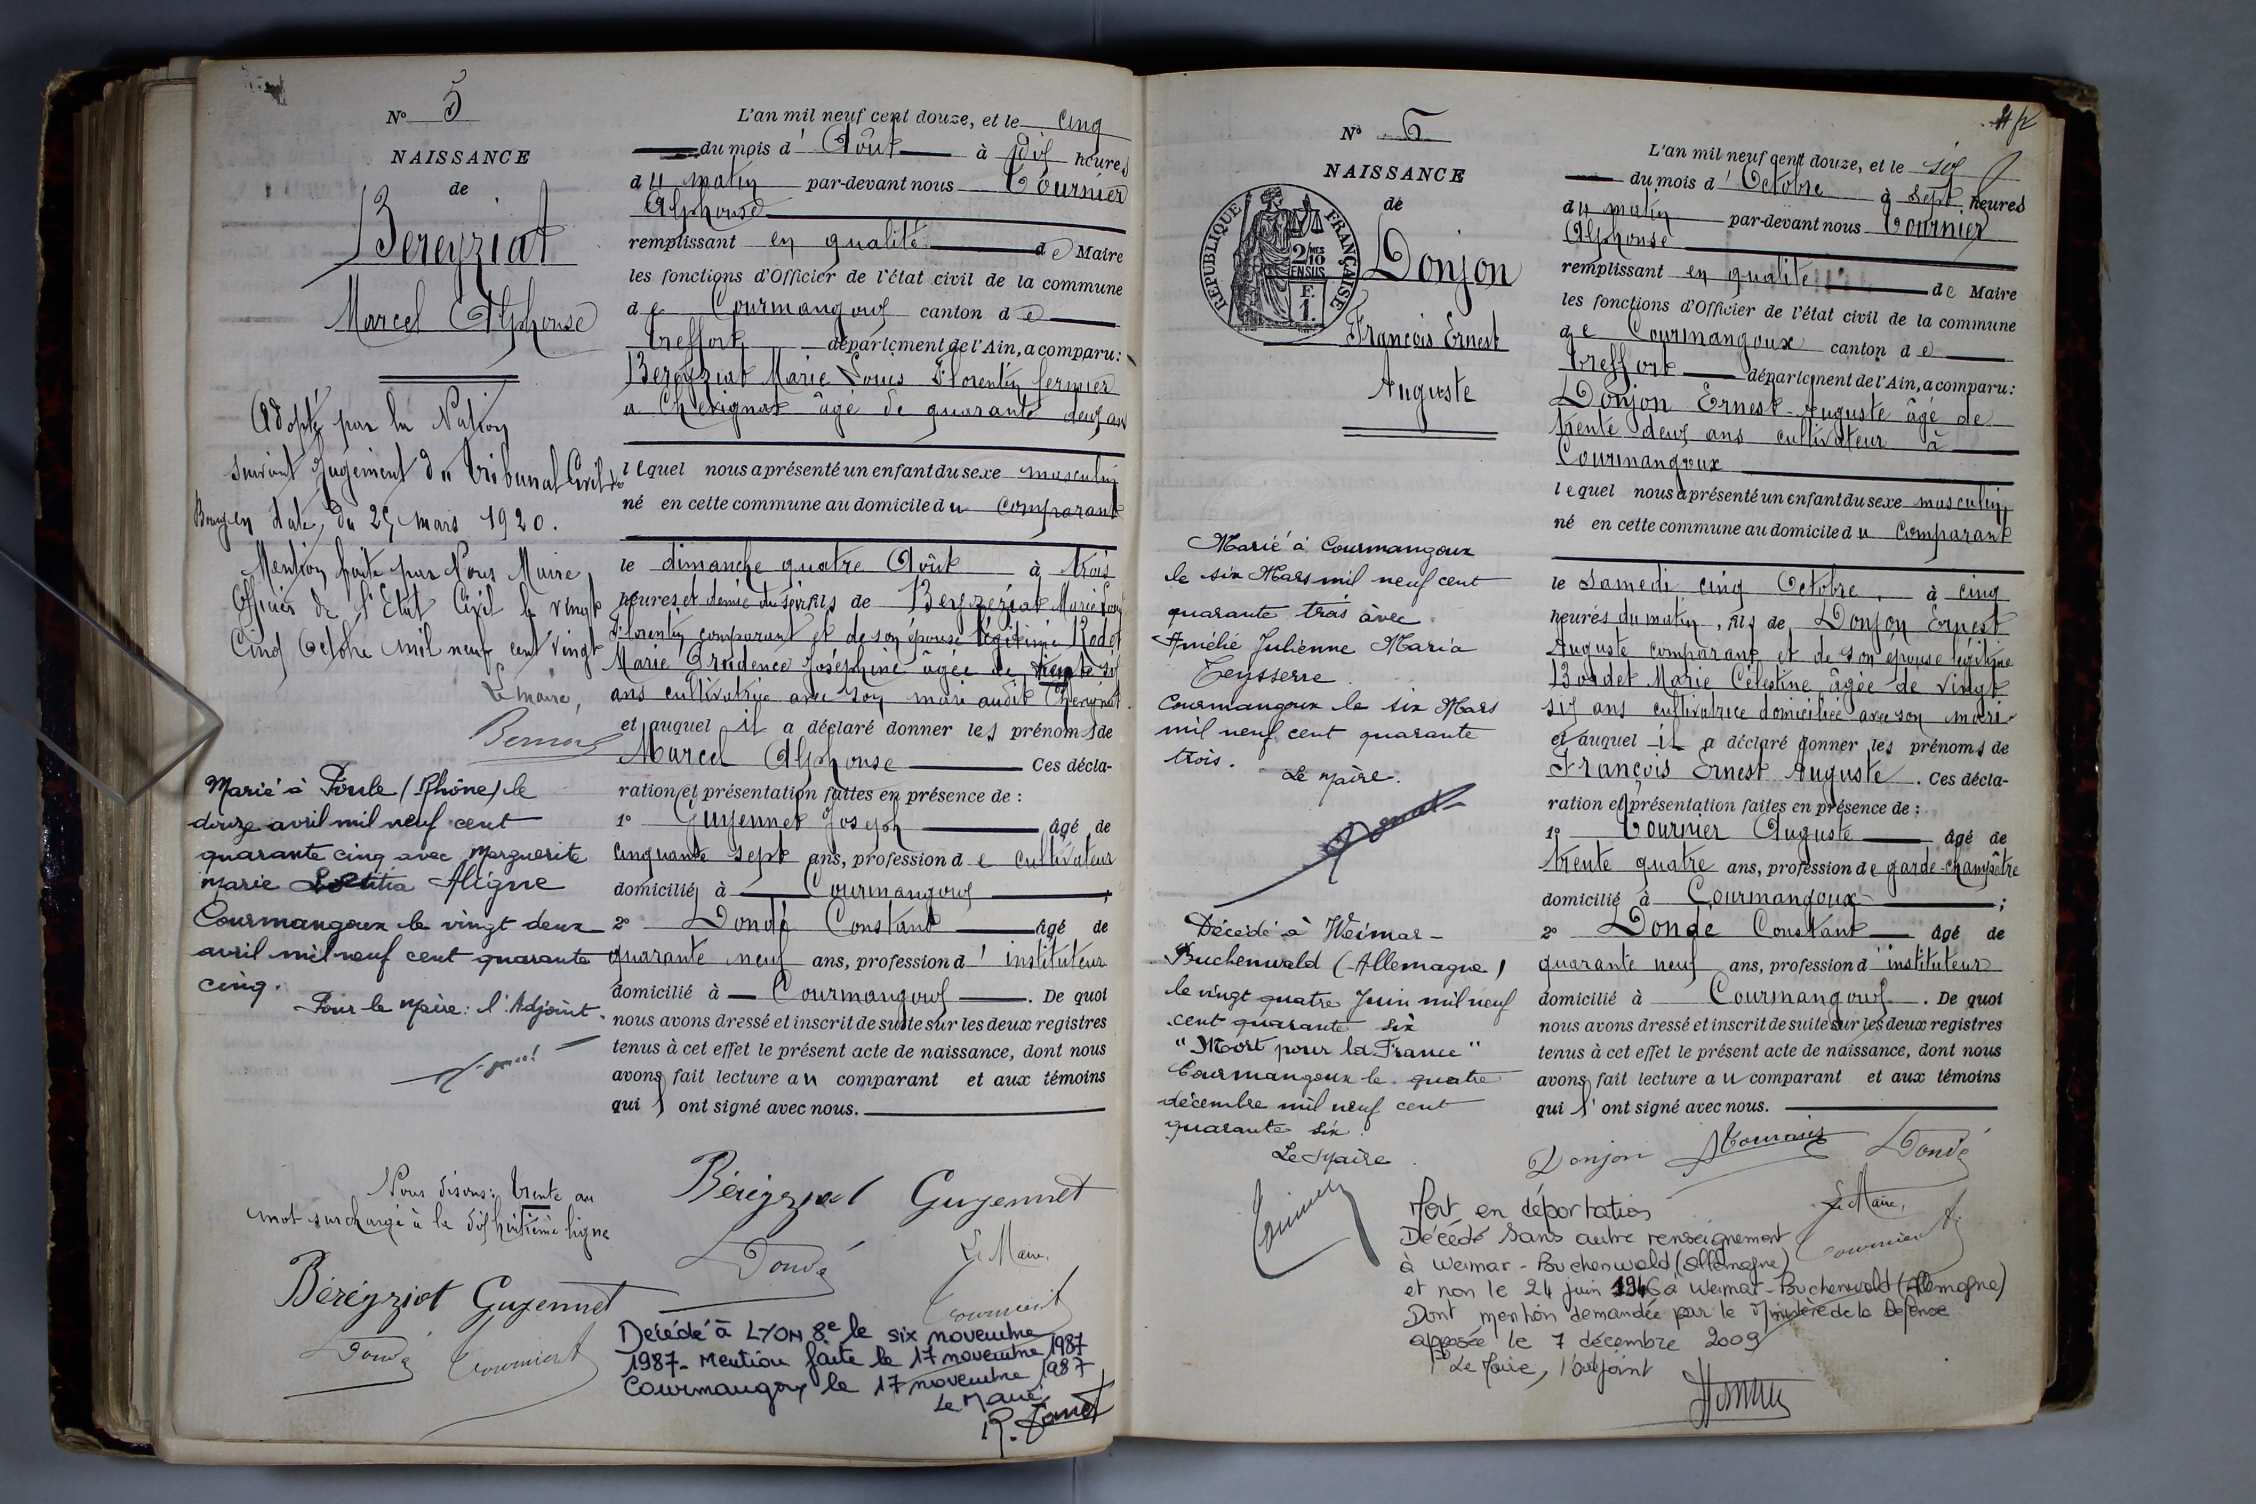 N° 5
NAISSANCE
de
Bereyziat
Marcel Alphonse
Adopté par la Nation
suivant jugement du tribunal Civil de
Bourg en date du 25 mars 1920.
Mention faite par Nous Maire,
Officier de l'Etat Civil le vingt
cinq Octobre mil neuf cent vingt
Le maire,
Marié à Poule (Rhône) le
douze avril mil neuf cent
quarante cinq avec Marguerite
Marie Laetitia Aligne
Courmangoux le vingt deux
avril mil neuf cent quarante
cinq.
Pour le Maire: l'Adjoint.
Nous disons: trente au
mot surchargé à la dixhuitième ligne
Béréyziat Guyennet
Dondé Tournier A
L'an mil neuf cent douze, et le cinq
du mois d'Août à dix heures
du matin par-devant nous Tournier
Alphonse
remplissant en qualité de Maire
les fonctions d'Officier de l'état civil de la commune
de Courmangoux canton de
Treffort département de l'Ain, a comparu:
Bereyziat Marie Louis Florentin fermier
à Chevignat âgé de quarante deux ans
lequel nous a présenté un enfant du sexe masculin
né en cette commune au domicile du comparant
le dimanche quatre Août à trois
heures et demie du soir fils de Beyzériat Marie Louis
Florentin comparant et de son épouse légitime Rodet
Marie Prudence Joséphine âgée de trente six
ans cultivatrice avec son mari audit Chevignat.
et auquel il a déclaré donner les prénoms de
Marcel Alphonse Ces décla-
ration et présentation faites en présence de :
1° Guyennet Joseph âgé de
cinquante sept ans, profession de cultivateur
domicilié à Courmangoux ;
2° Dondé Constant âgé de
quarante neuf ans, profession d'instituteur
domicilié à Courmangoux. De quoi
nous avons dressé et inscrit de suite sur les deux registres
tenus à cet effet le présent acte de naissance, dont nous
avons fait lecture au comparant et aux témoins
qui l'ont signé avec nous.
Béréyziat Guyennet
Dondé Le Maire.
Tournier A
Décédé à LYON 8e le six novembre
1987 - Mention faite le 17 novembre 1987
Courmangoux le 17 novembre 1987
Le Maire
N° 6
NAISSANCE
de
RÉPUBLIQUE FRANÇAISE
2/10
EN SUS
F.
1.
Donjon
François Ernest
Auguste
Marié à Courmangoux
le six Mars mil neuf cent
quarante trois avec
Amélie Julienne Maria
Teysserre.
Courmangoux le six Mars
mil neuf cent quarante
trois.
Le Maire.
Décédé à Weimar-
Buchenwald (Allemagne)
le vingt quatre Juin mil neuf
cent quarante six
"Mort pour la France"
Courmangoux le quatre
décembre mil neuf cent
quarante six.
Le Maire
L'an mil neuf cent douze, et le six
du mois d'Octobre à sept heures
du matin par-devant nous Tournier
Alphonse
remplissant en qualité de Maire
les fonctions d'Officier de l'état civil de la commune
de Courmangoux canton de
Treffort département de l'Ain, a comparu:
Donjon Ernest-Auguste âgé de
trente deux ans cultivateur à
Courmangoux
lequel nous a présenté un enfant du sexe masculin
né en cette commune au domicile du comparant
le samedi cinq Octobre à cinq
heures du matin, fils de Donjon Ernest
Auguste comparant et de son épouse légitime
Boudet Marie Célestine âgée de vingt
six ans cultivatrice domiciliée avec son mari
et auquel il a déclaré donner les prénoms de
François Ernest Auguste. Ces décla-
ration et présentation faites en présence de :
1° Tournier Auguste âgé de
trente quatre ans, profession de garde-champêtre
domicilié à Courmangoux ;
2° Dondé Constant âgé de
quarante neuf ans, profession d'instituteur
domicilié à Courmangoux. De quoi
nous avons dressé et inscrit de suite sur les deux registres
tenus à cet effet le présent acte de naissance, dont nous
avons fait lecture au comparant et aux témoins
qui l'ont signé avec nous.
Donjon Tournier Dondé
Le Maire,
Tournier A.
Mort en déportation
Décédé sans autre renseignement
à Weimar-Buchenwald (Allemagne)
et non le 24 juin 1946 à Weimar-Buchenwald (Allemagne)
Dont mention demandée par le Ministère de la Défense
apposée le 7 décembre 2009
Pr Le Maire, l'adjoint